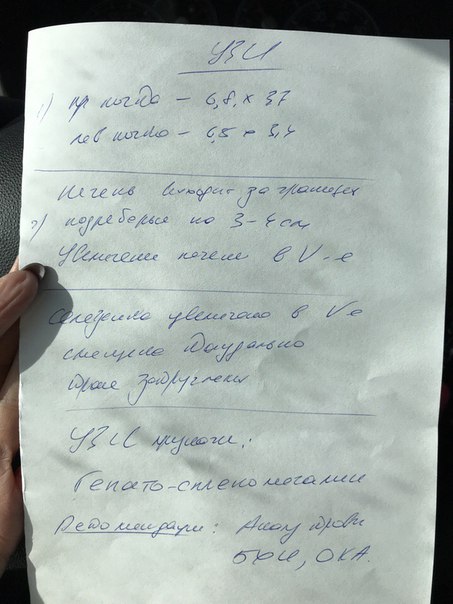 УЗИ
1) пр почка – 6,8 х 3,7
лев почка – 6,5 х 3,4
Печень выходит за границы
2) подреберье на 3-4 см
Увеличение печени в V-е
Селезенка увеличена в V-е
смещена каудально
края закруглены
УЗИ признаки:
Гепато-спленомегалии
Рекомендации: Анализ крови
БХИ, ОКА.